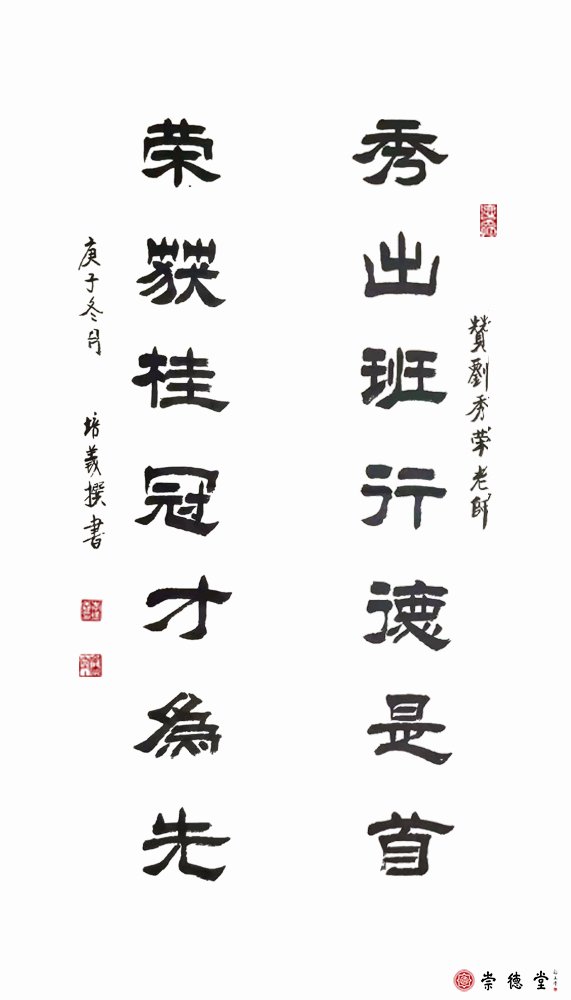 赞劉秀荣老師
秀出班行德是首
荣获桂冠才為先
庚子冬月 培義撰書
崇德堂